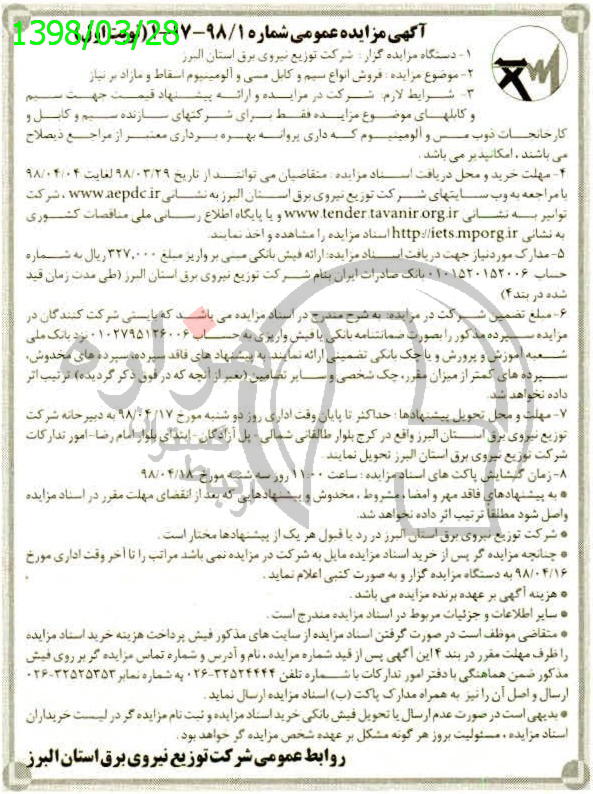 1398/03/28
آگهی مزایده عمومی شماره ۹۸/۱-۱۷-۱ (نوبت اول)
۱- دستگاه مزایده گزار : شرکت توزیع نیروی برق استان البرز
۲- موضوع مزایده : فروش انواع سیم و کابل مسی و آلومینیوم اسقاط و مازاد بر نیاز
۳- شرایط لازم: شرکت در مزایده و ارائه پیشنهاد قیمت جهت سیم
و کابلهای موضوع مزایده فقط برای شرکتهای سازنده سیم و کابل و
کارخانجات ذوب مس و آلومینیوم که داری پروانه بهره برداری معتبر از مراجع ذیصلاح
می باشند ، امکانپذیر می باشد .
۴- مهلت خرید و محل دریافت اسناد مزایده : متقاضیان می توانند از تاریخ ۹۸/۰۳/۲۹ لغایت ۹۸/۰۴/۰۴
با مراجعه به وب سایتهای شرکت توزیع نیروی برق استان البرز به نشانی www.aepdc.ir ، شرکت
توانیر به نشانی www.tender.tavanir.org.ir و یا پایگاه اطلاع رسانی ملی مناقصات کشوری
به نشانی http://iets.mporg.ir اسناد مزایده را مشاهده و اخذ نمایند.
۵- مدارک موردنیاز جهت دریافت اسناد مزایده: ارائه فیش بانکی مبنی بر واریز مبلغ ۳۲۷,۰۰۰ ریال به شماره
حساب ۰۱۰۱۵۲۰۱۵۲۰۰۶ بانک صادرات ایران بنام شرکت توزیع نیروی برق استان البرز (طی مدت زمان قید
شده در بند۴)
۶- مبلغ تضمین شرکت در مزایده: به شرح مندرج در اسناد مزایده می باشد که بایستی شرکت کنندگان در
مزایده سپرده مذکور را بصورت ضمانتنامه بانکی یا فیش واریزی به حساب ۰۱۰۲۷۹۵۱۲۶۰۰۶ نزد بانک ملی
شعبه آموزش و پرورش و یا چک بانکی تضمینی ارائه نمایند. به پیشنهاد های فاقد سپرده، سپرده های مخدوش،
سپرده های کمتر از میزان مقرر، چک شخصی و سایر تضامین (بغیر از آنچه که در فوق ذکر گردیده) ترتیب اثر
داده نخواهد شد.
۷- مهلت و محل تحویل پیشنهادها : حداکثر تا پایان وقت اداری روز دو شنبه مورخ ۹۸/۰۴/۱۷ به دبیرخانه شرکت
توزیع نیروی برق استان البرز واقع در کرج بلوار طالقانی شمالی- پل آزادگان - ابتدای بلوار امام رضا- امور تدارکات
شرکت توزیع نیروی برق استان البرز تحویل نمایند.
۸- زمان گشایش پاکت های اسناد مزایده : ساعت ۱۱:۰۰ روز سه شنبه مورخ ۹۸/۰۴/۱۸
* به پیشنهادهای فاقد مهر و امضا ، مشروط ، مخدوش و پیشنهادهایی که بعد از انقضای مهلت مقرر در اسناد مزایده
واصل شود مطلقا ترتیب اثر داده نخواهد شد.
* شرکت توزیع نیروی برق استان البرز در رد یا قبول هر یک از پیشنهادها مختار است .
* چنانچه مزایده گر پس از خرید اسناد مزایده مایل به شرکت در مزایده نمی باشد مراتب را تا آخر وقت اداری مورخ
۹۸/۰۴/۱۶ به دستگاه مزایده گزار و به صورت کتبی اعلام نماید .
* هزینه آگهی بر عهده برنده مزایده می باشد .
* سایر اطلاعات و جزئیات مربوط در اسناد مزایده مندرج است .
* متقاضی موظف است در صورت گرفتن اسناد مزایده از سایت های مذکور فیش پرداخت هزینه خرید اسناد مزایده
را ظرف مهلت مقرر در بند ۴ این آگهی پس از قید شماره مزایده ، نام و آدرس و شماره تماس مزایده گر بر روی فیش
مذکور ضمن هماهنگی با دفتر امور تدارکات با شماره تلفن ۳۲۵۲۴۴۴۴-۰۲۶ به شماره نمابر ۳۲۵۲۵۳۵۳-۰۲۶
ارسال و اصل آن را نیز به همراه مدارک پاکت (ب) اسناد مزایده ارسال نماید .
* بدیهی است در صورت عدم ارسال یا تحویل فیش بانکی خرید اسناد مزایده و ثبت نام مزایده گر در لیست خریداران
اسناد مزایده ، مسئولیت بروز هر گونه مشکل بر عهده شخص مزایده گر خواهد بود .
روابط عمومی شرکت توزیع نیروی برق استان البرز